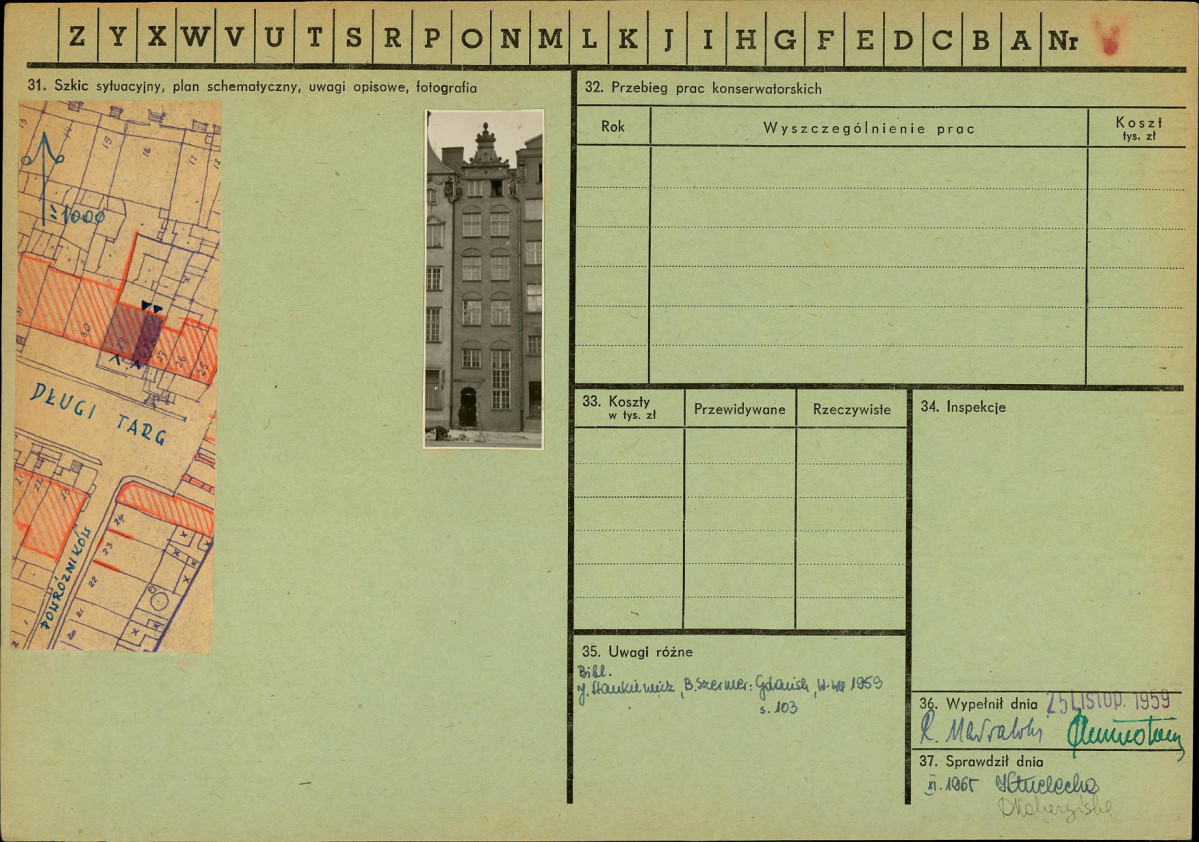 Z Y X W V U T S R P O N M L K J I H G F E D C B A Nr
31. Szkic sytuacyjny, plan schematyczny, uwagi opisowe, fotografia
13
14
15
16
17
1:1000
31
30
29
28
27
26
25
DŁUGI TARG
21
22
23
24
23
22
21
20
POWROŹNIKÓW
1
2
32. Przebieg prac konserwatorskich
Rok
Wyszczególnienie prac
Koszt
tys. zł
33. Koszty
w tys. zł
Przewidywane
Rzeczywiste
34. Inspekcje
35. Uwagi różne
Bibl.
J. Stankiewicz, B. Szermer: Gdańsk, W-wa 1959
s. 103
36. Wypełnił dnia 25 LISTOP. 1959
37. Sprawdził dnia
XI. 1965